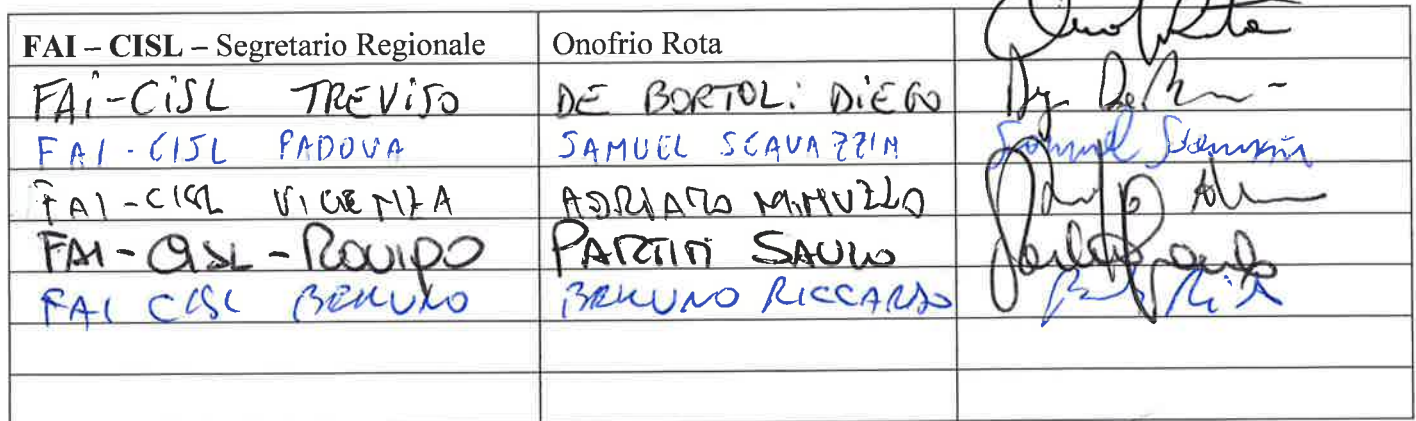 FAI – CISL – Segretario Regionale Onofrio Rota Onof Rota
FAi-CiSL TREViSO DE BORTOLi DiEGO
FAI - CISL PADOVA SAMUEL SCAVAZZIN Samuel
FAI - CISL VICENZA ADRIANO
FAI - CISL - ROVIGO SAULO
FAI CISL BELLUNO BELLUNO RICCARDO